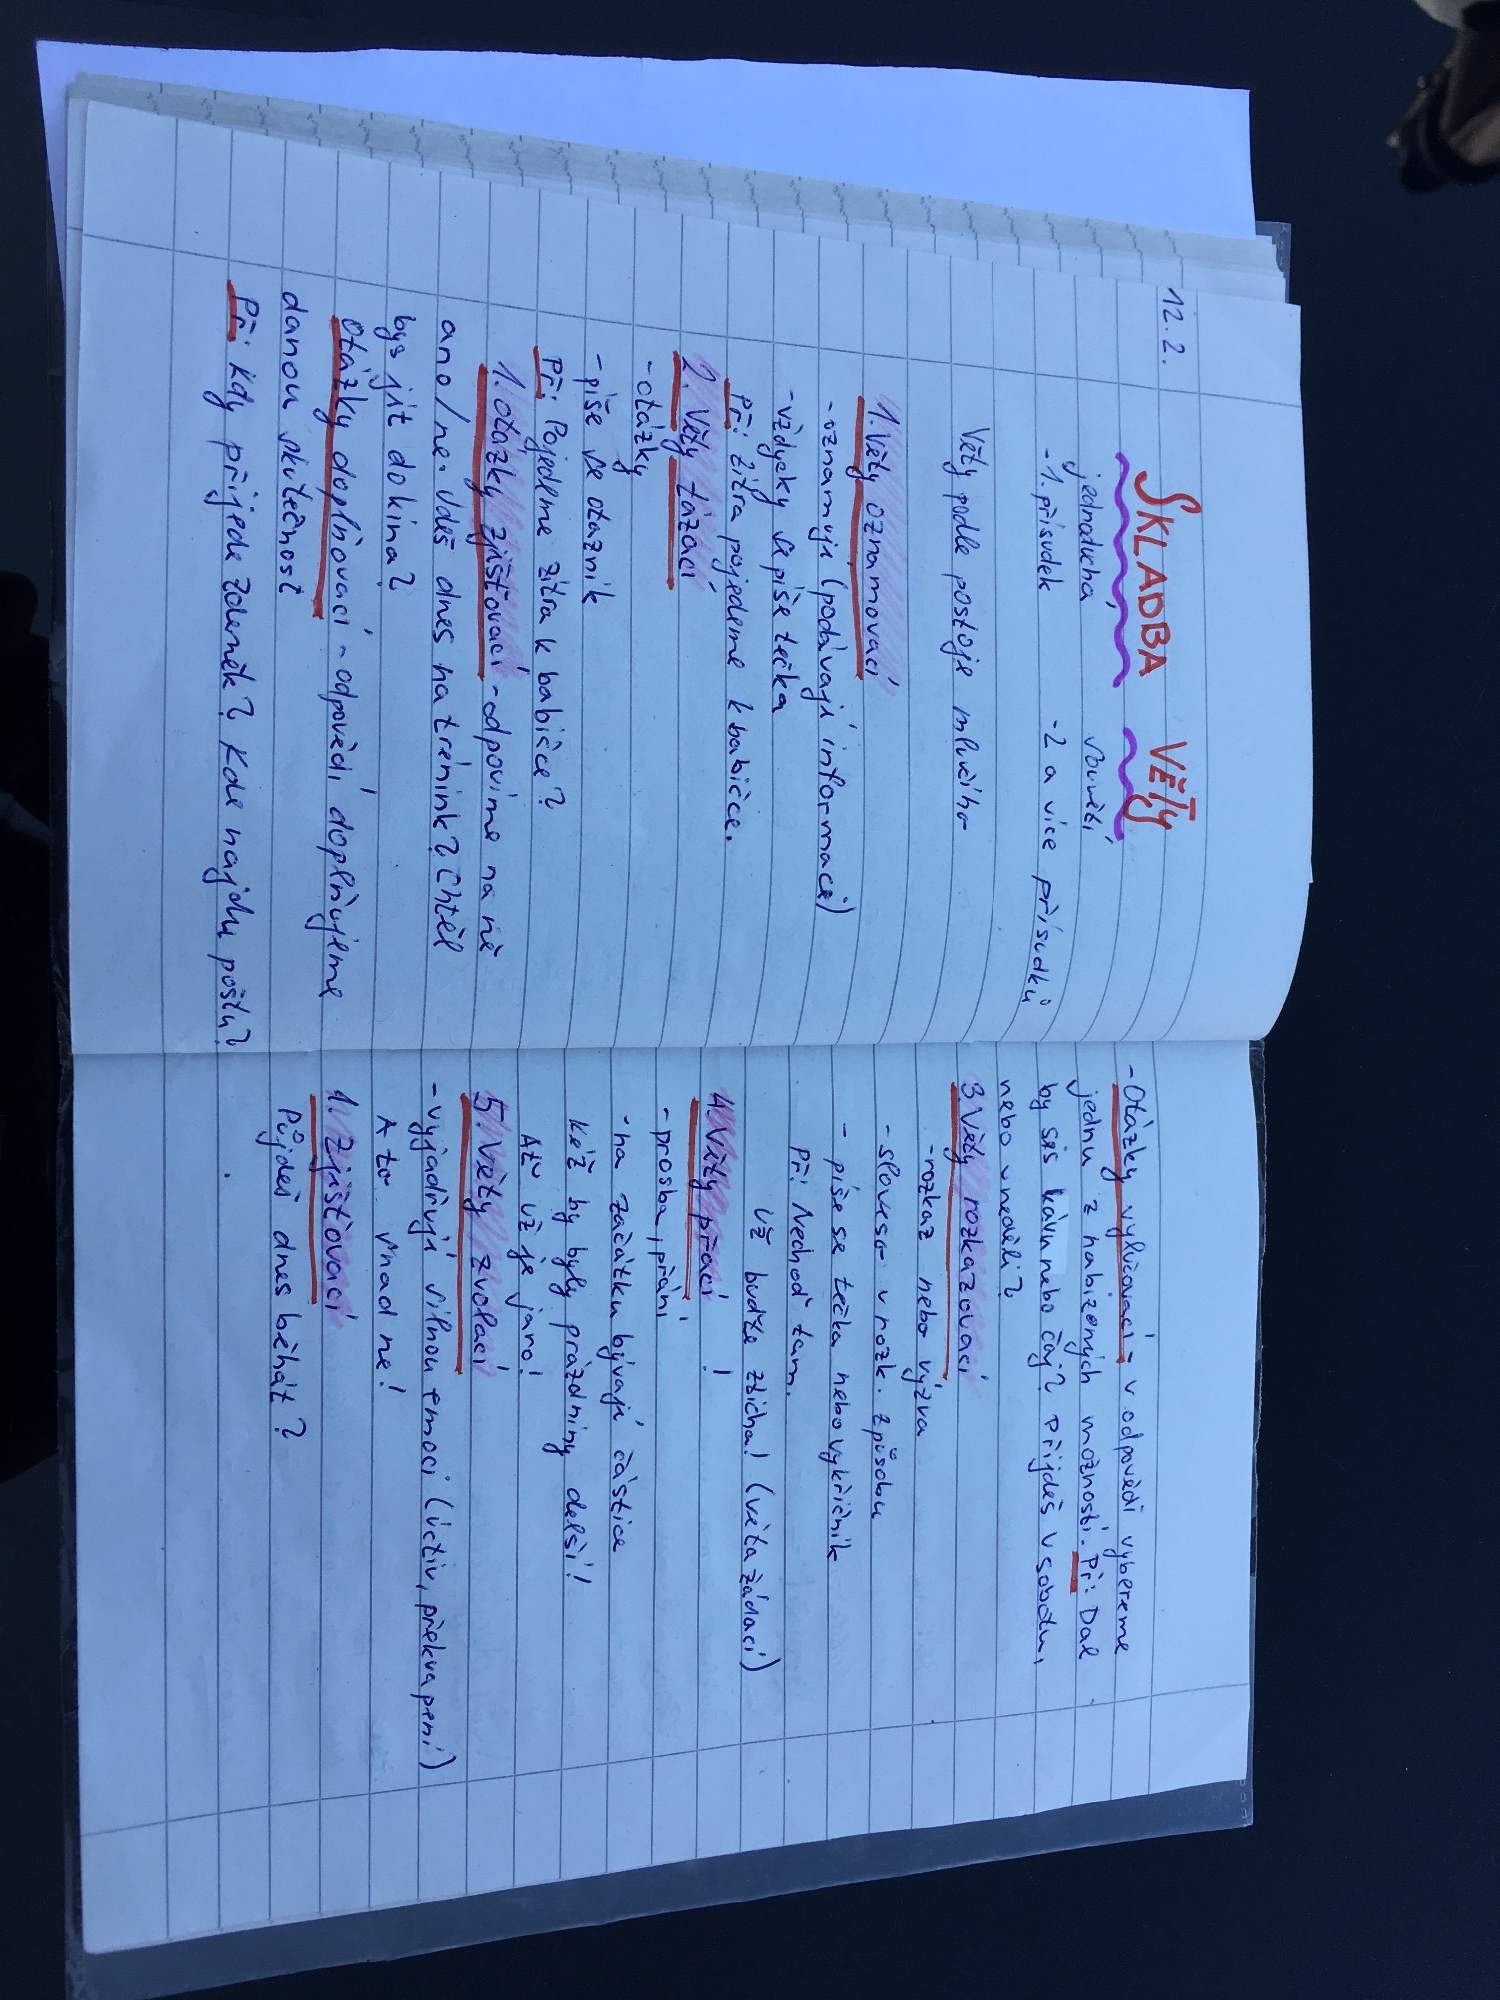 12.2.
SKLADBA VĚTY
jednoduchá souvětí
- 1. přísudek - 2 a více přísudků
Věty podle postoje mluvčího
1. Věty oznamovací
- oznamují (podávají informaci)
- vždycky se píše tečka
Př: Zítra pojedeme k babičce.
2. Věty tázací
- otázky
- píše se otazník
Př: Pojedeme zítra k babičce?
1. otázky zjišťovací - odpovíme na ně
ano/ne. Jdeš dnes na trénink? Chtěl
bys jít do kina?
Otázky doplňovací - odpovědí doplňujeme
danou skutečnost
Př: Kdy přijede Zdeněk? Kde najdu poštu?
- Otázky vylučovací - v odpovědi vybereme
jednu z nabízených možností. Př: Dal
by sis kávu nebo čaj? Přijdeš v sobotu,
nebo v neděli?
3. Věty rozkazovací
- rozkaz nebo výzva
- sloveso v rozk. způsobu
- píše se tečka nebo vykřičník
Př: Nechoď tam.
Už buďte zticha! (věta žádací)
4. Věty přací !
- prosba, přání
- na začátku bývají částice
Kéž by byly prázdniny delší!
Ať už je jaro!
5. Věty zvolací
- vyjadřují silnou emoci (úctiv, překvapení)
A to snad ne!
1. Zjišťovací
Půjdeš dnes běhat?